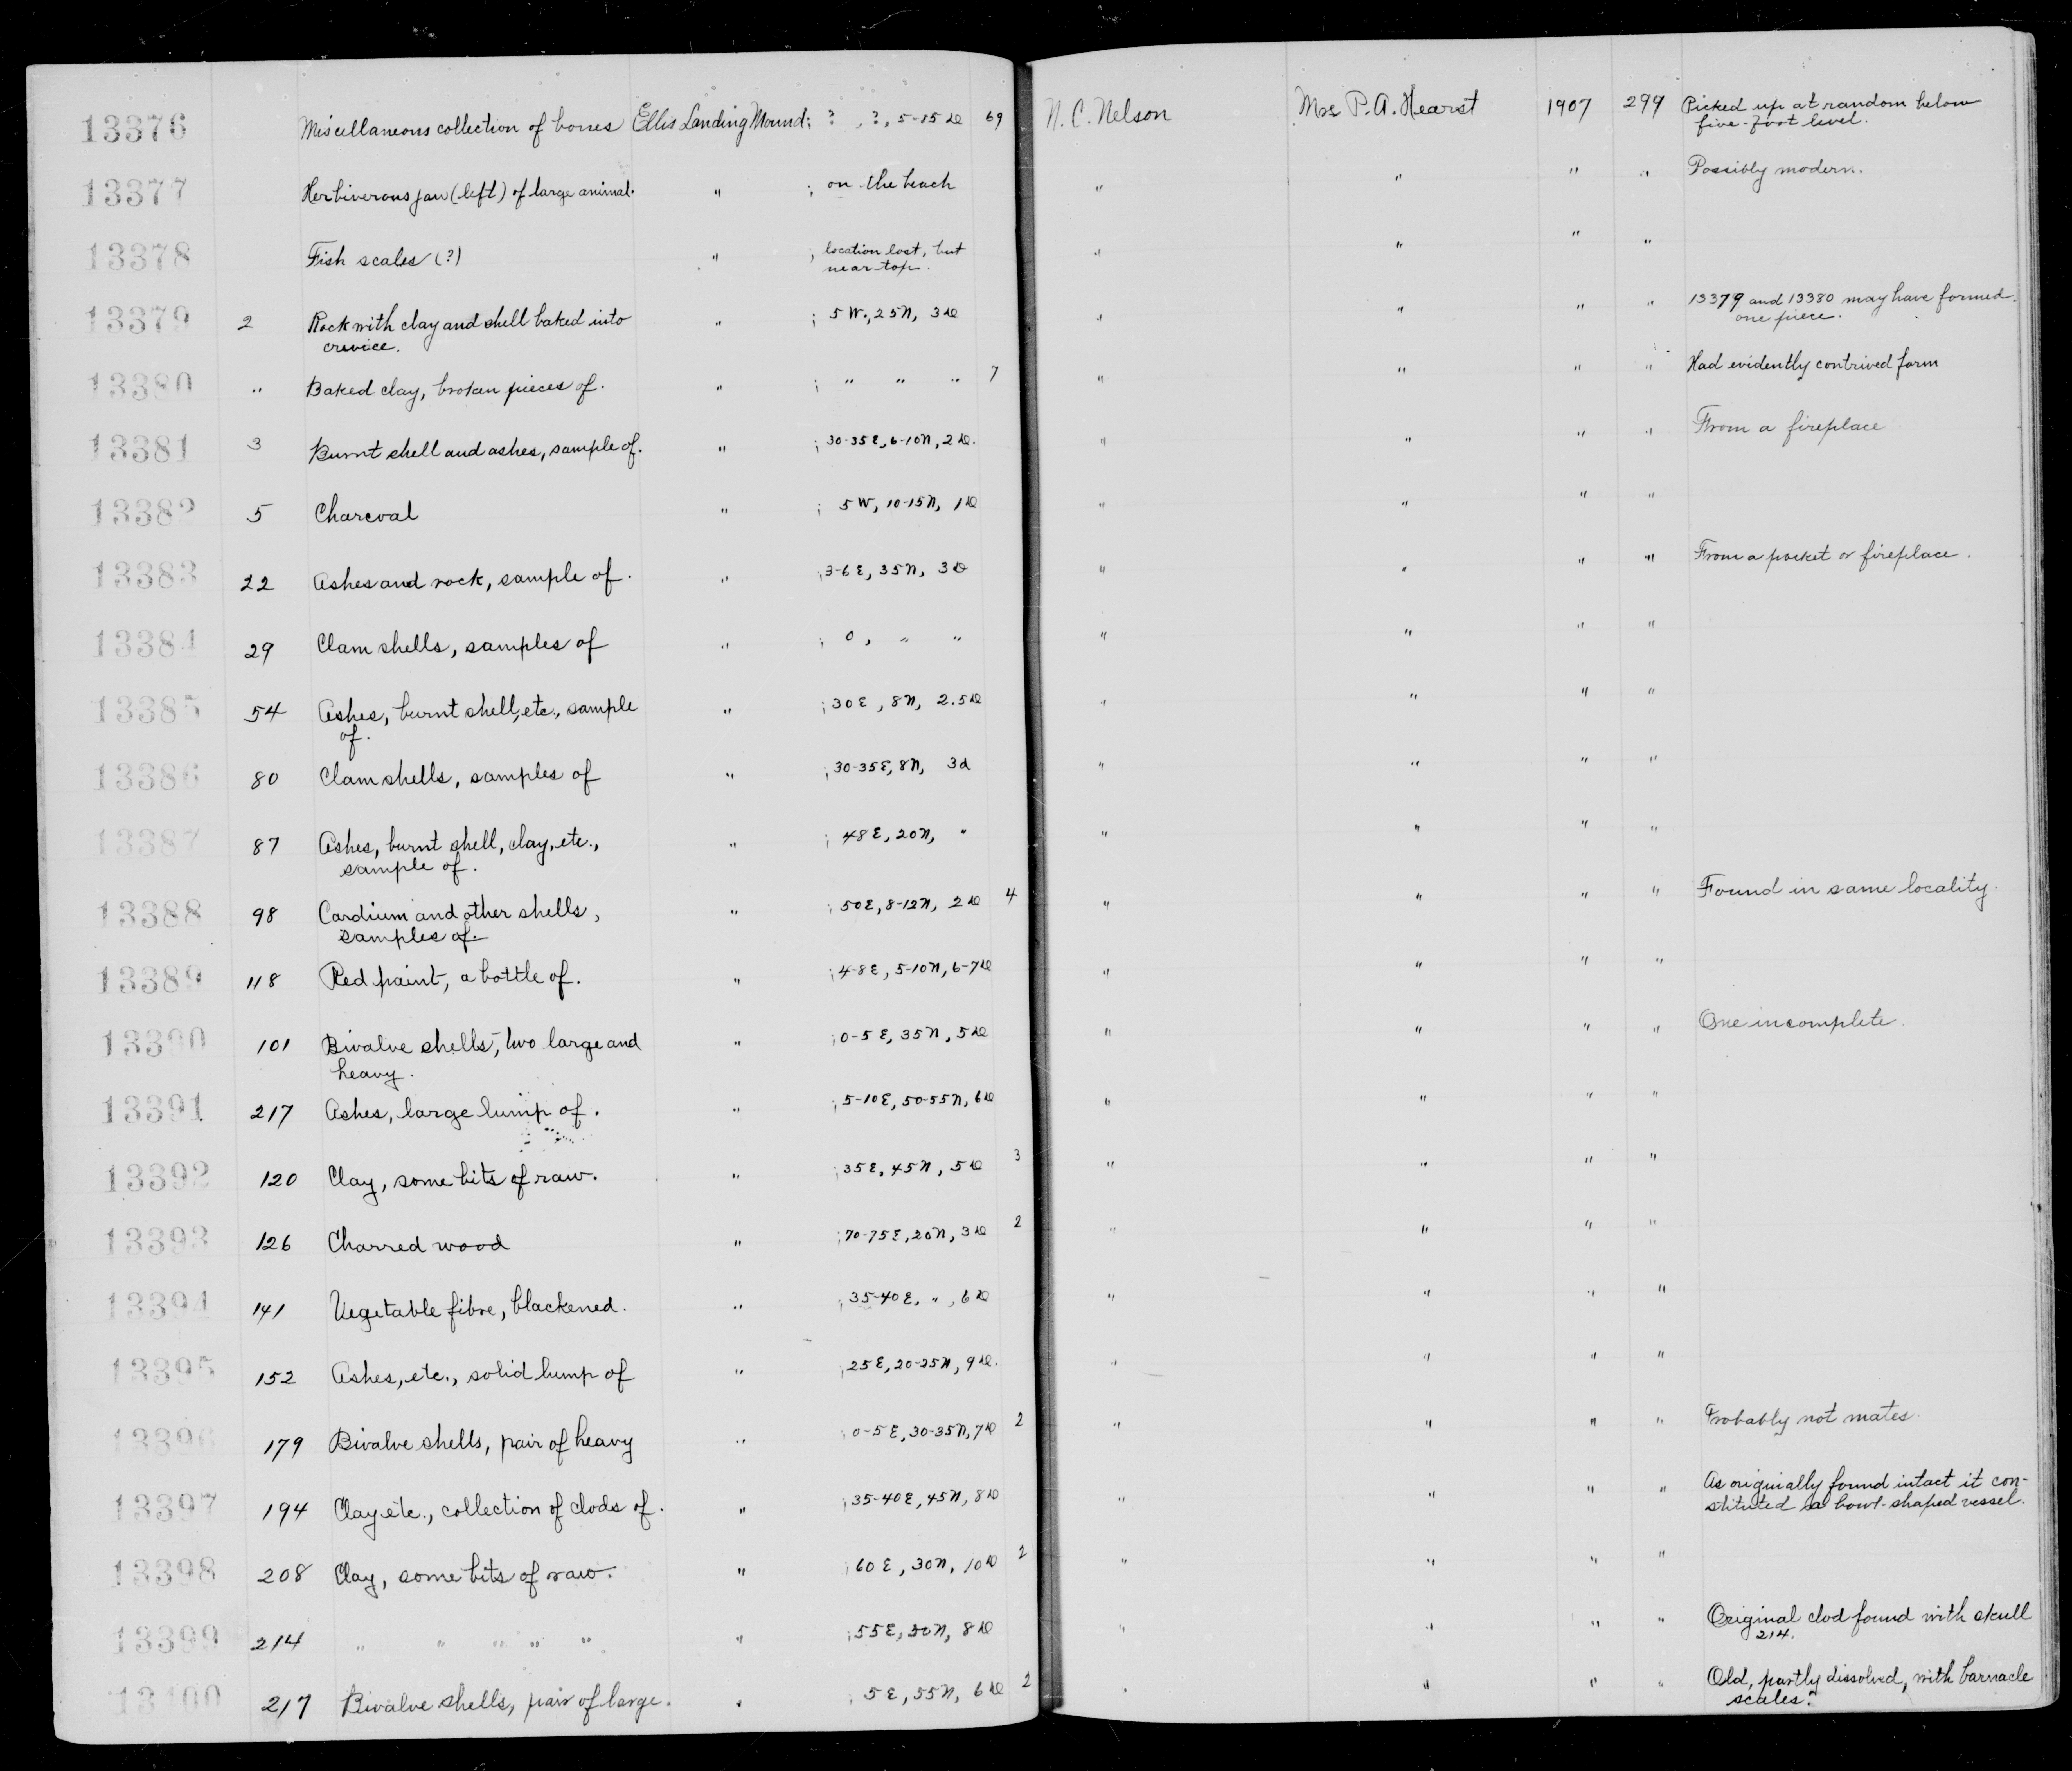 13376 Miscellaneous collection of bones Ellis Landing Mound; ? , ?, 5-15 D 69 N. C. Nelson Mrs P. A. Hearst 1907 299 Picked up at random below
five-foot level.
13377 Herbiverous jaw (left) of large animal. " ; on the beach " " " " Possibly modern.
13378 Fish scales (?) " ; location lost, but " " " "
near top.
13379 2 Rock with clay and shell baked into " ; 5 W., 25 N, 3 D " " " " 13379 and 13380 may have formed
crevice. one piece.
13380 " Baked clay, broken pieces of. " ; " " " 7 " " " " Had evidently contrived form
13381 3 Burnt shell and ashes, sample of. " ; 30-35 E, 6-10 N, 2 D. " " " " From a fireplace
13382 5 Charcoal " ; 5 W, 10-15 N, 1 D " " " "
13383 22 Ashes and rock, sample of. " ; 3-6 E, 35 N, 3 D " " " " From a pocket or fireplace.
13384 29 Clam shells, samples of " ; 0, " " " " " "
13385 54 Ashes, burnt shell, etc., sample " ; 30 E, 8 N, 2.5 D " " " "
of.
13386 80 Clam shells, samples of " ; 30-35 E, 8 N, 3 d " " " "
13387 87 Ashes, burnt shell, clay, etc., " ; 48 E, 20 N, " " " " "
sample of.
13388 98 Cardium and other shells, " ; 50 E, 8-12 N, 2 D 4 " " " " Found in same locality.
samples of.
13389 118 Red paint, a bottle of. " ; 4-8 E, 5-10 N, 6-7 D " " " "
13390 101 Bivalve shells, two large and " ; 0-5 E, 35 N, 5 D " " " " One incomplete.
heavy.
13391 217 Ashes, large lump of. " ; 5-10 E, 50-55 N, 6 D " " " "
13392 120 Clay, some bits of raw. " ; 35 E, 45 N, 5 D 3 " " " "
13393 126 Charred wood " ; 70-75 E, 20 N, 3 D 2 " " " "
13394 141 Vegetable fibre, blackened. " ; 35-40 E, ", 6 D " " " "
13395 152 Ashes, etc., solid lump of " ; 25 E, 20-25 N, 9 D. " " " "
13396 179 Bivalve shells, pair of heavy " ; 0-5 E, 30-35 N, 7 D 2 " " " " Probably not mates.
13397 194 Clay etc., collection of clods of. " ; 35-40 E, 45 N, 8 D " " " " As originally found intact it con-
stituted a bowl-shaped vessel.
13398 208 Clay, some bits of raw. " ; 60 E, 30 N, 10 D 2 " " " "
13399 214 " " " " " " ; 55 E, 50 N, 8 D " " " " Original clod found with skull
214.
13400 217 Bivalve shells, pair of large. " ; 5 E, 55 N, 6 D 2 " " " " Old, partly dissolved, with barnacle
scales.